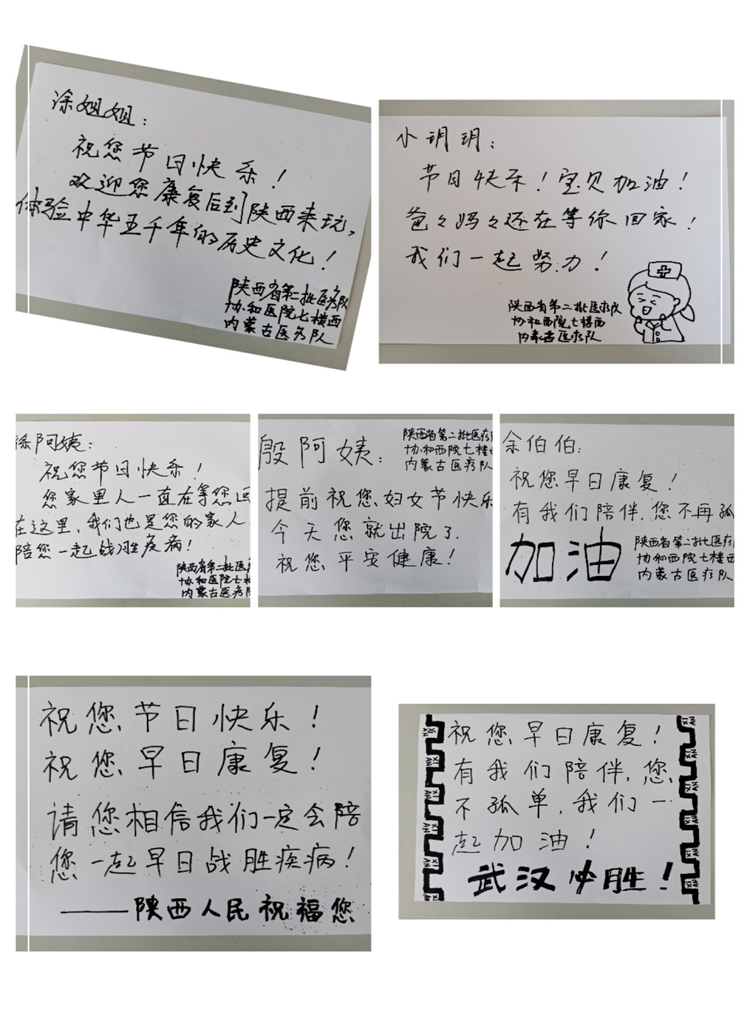 涂姐姐：
祝您节日快乐！
欢迎您康复后到陕西来玩，
体验中华五千年的历史文化！
陕西省第二批医疗队
协和医院七楼西
内蒙古医疗队
小玥玥：
节日快乐！宝贝加油！
爸々妈々还在等你回家！
我们一起努力！
陕西省第二批医疗队
协和西院七楼西
内蒙古医疗队
阿姨：
祝您节日快乐！
您家里人一直在等您回
在这里，我们也是您的家人
陪您一起战胜疫病！
陕西省第二批医
协和医院七楼
内蒙古医疗队
殷阿姨：
陕西省第二批医疗
协和西院七楼
内蒙古医疗队
提前祝您妇女节快乐
今天您就出院了，
祝您平安健康！
余伯伯：
祝您早日康复！
有我们陪伴，您不再孤
加油
陕西省第二批医疗
协和医院七楼西
内蒙古医疗队
祝您节日快乐！
祝您早日康复！
请您相信我们一定会陪
您一起早日战胜疾病！
——陕西人民祝福您
祝您早日康复！
有我们陪伴，您
不孤单，我们一
起加油！
武汉必胜！